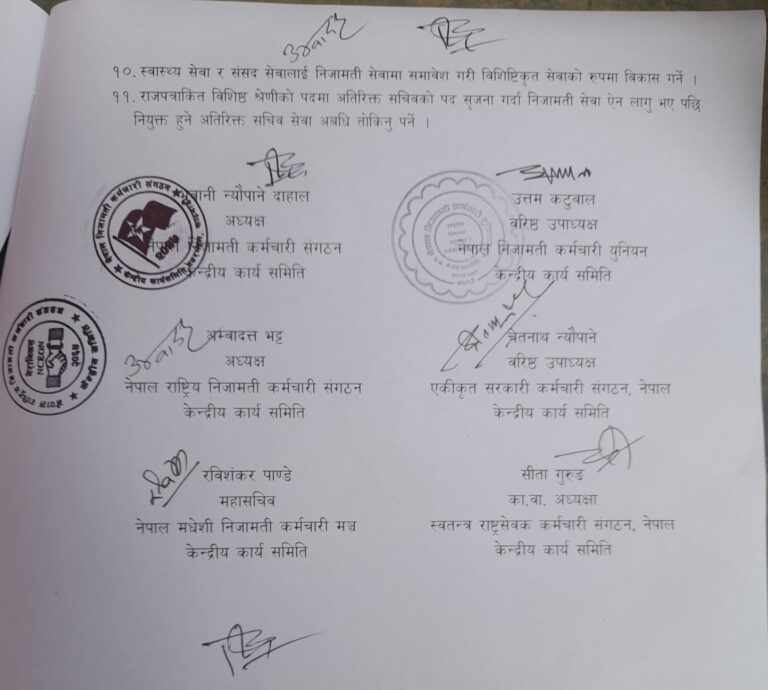 १०. स्वास्थ्य सेवा र संसद सेवालाई निजामती सेवामा समावेश गरी विशिष्टिकृत सेवाको रुपमा विकास गर्ने ।
११. राजपत्राकित विशिष्ठ श्रेणीको पदमा अतिरिक्त सचिवको पद सृजना गर्दा निजामती सेवा ऐन लागु भए पछि
नियुक्त हुने अतिरिक्त सचिव सेवा अबधि तोकिनु पर्ने ।
न्यौपाने दाहाल
अध्यक्ष
नेपाल निजामती कर्मचारी संगठन
केन्द्रीय कार्य समिति
उत्तम कटुवाल
वरिष्ठ उपाध्यक्ष
नेपाल निजामती कर्मचारी युनियन
केन्द्रीय कार्य समिति
अम्वादत्त भट्ट
अध्यक्ष
नेपाल राष्ट्रिय निजामती कर्मचारी संगठन
केन्द्रीय कार्य समिति
चेतनाथ न्यौपाने
वरिष्ठ उपाध्यक्ष
एकीकृत सरकारी कर्मचारी संगठन, नेपाल
केन्द्रीय कार्य समिति
रविशंकर पाण्डे
महासचिव
नेपाल मधेशी निजामती कर्मचारी मञ्च
केन्द्रीय कार्य समिति
सीता गुरुङ
का.वा. अध्यक्षा
स्वतन्त्र राष्ट्रसेवक कर्मचारी संगठन, नेपाल
केन्द्रीय कार्य समिति
NCEON